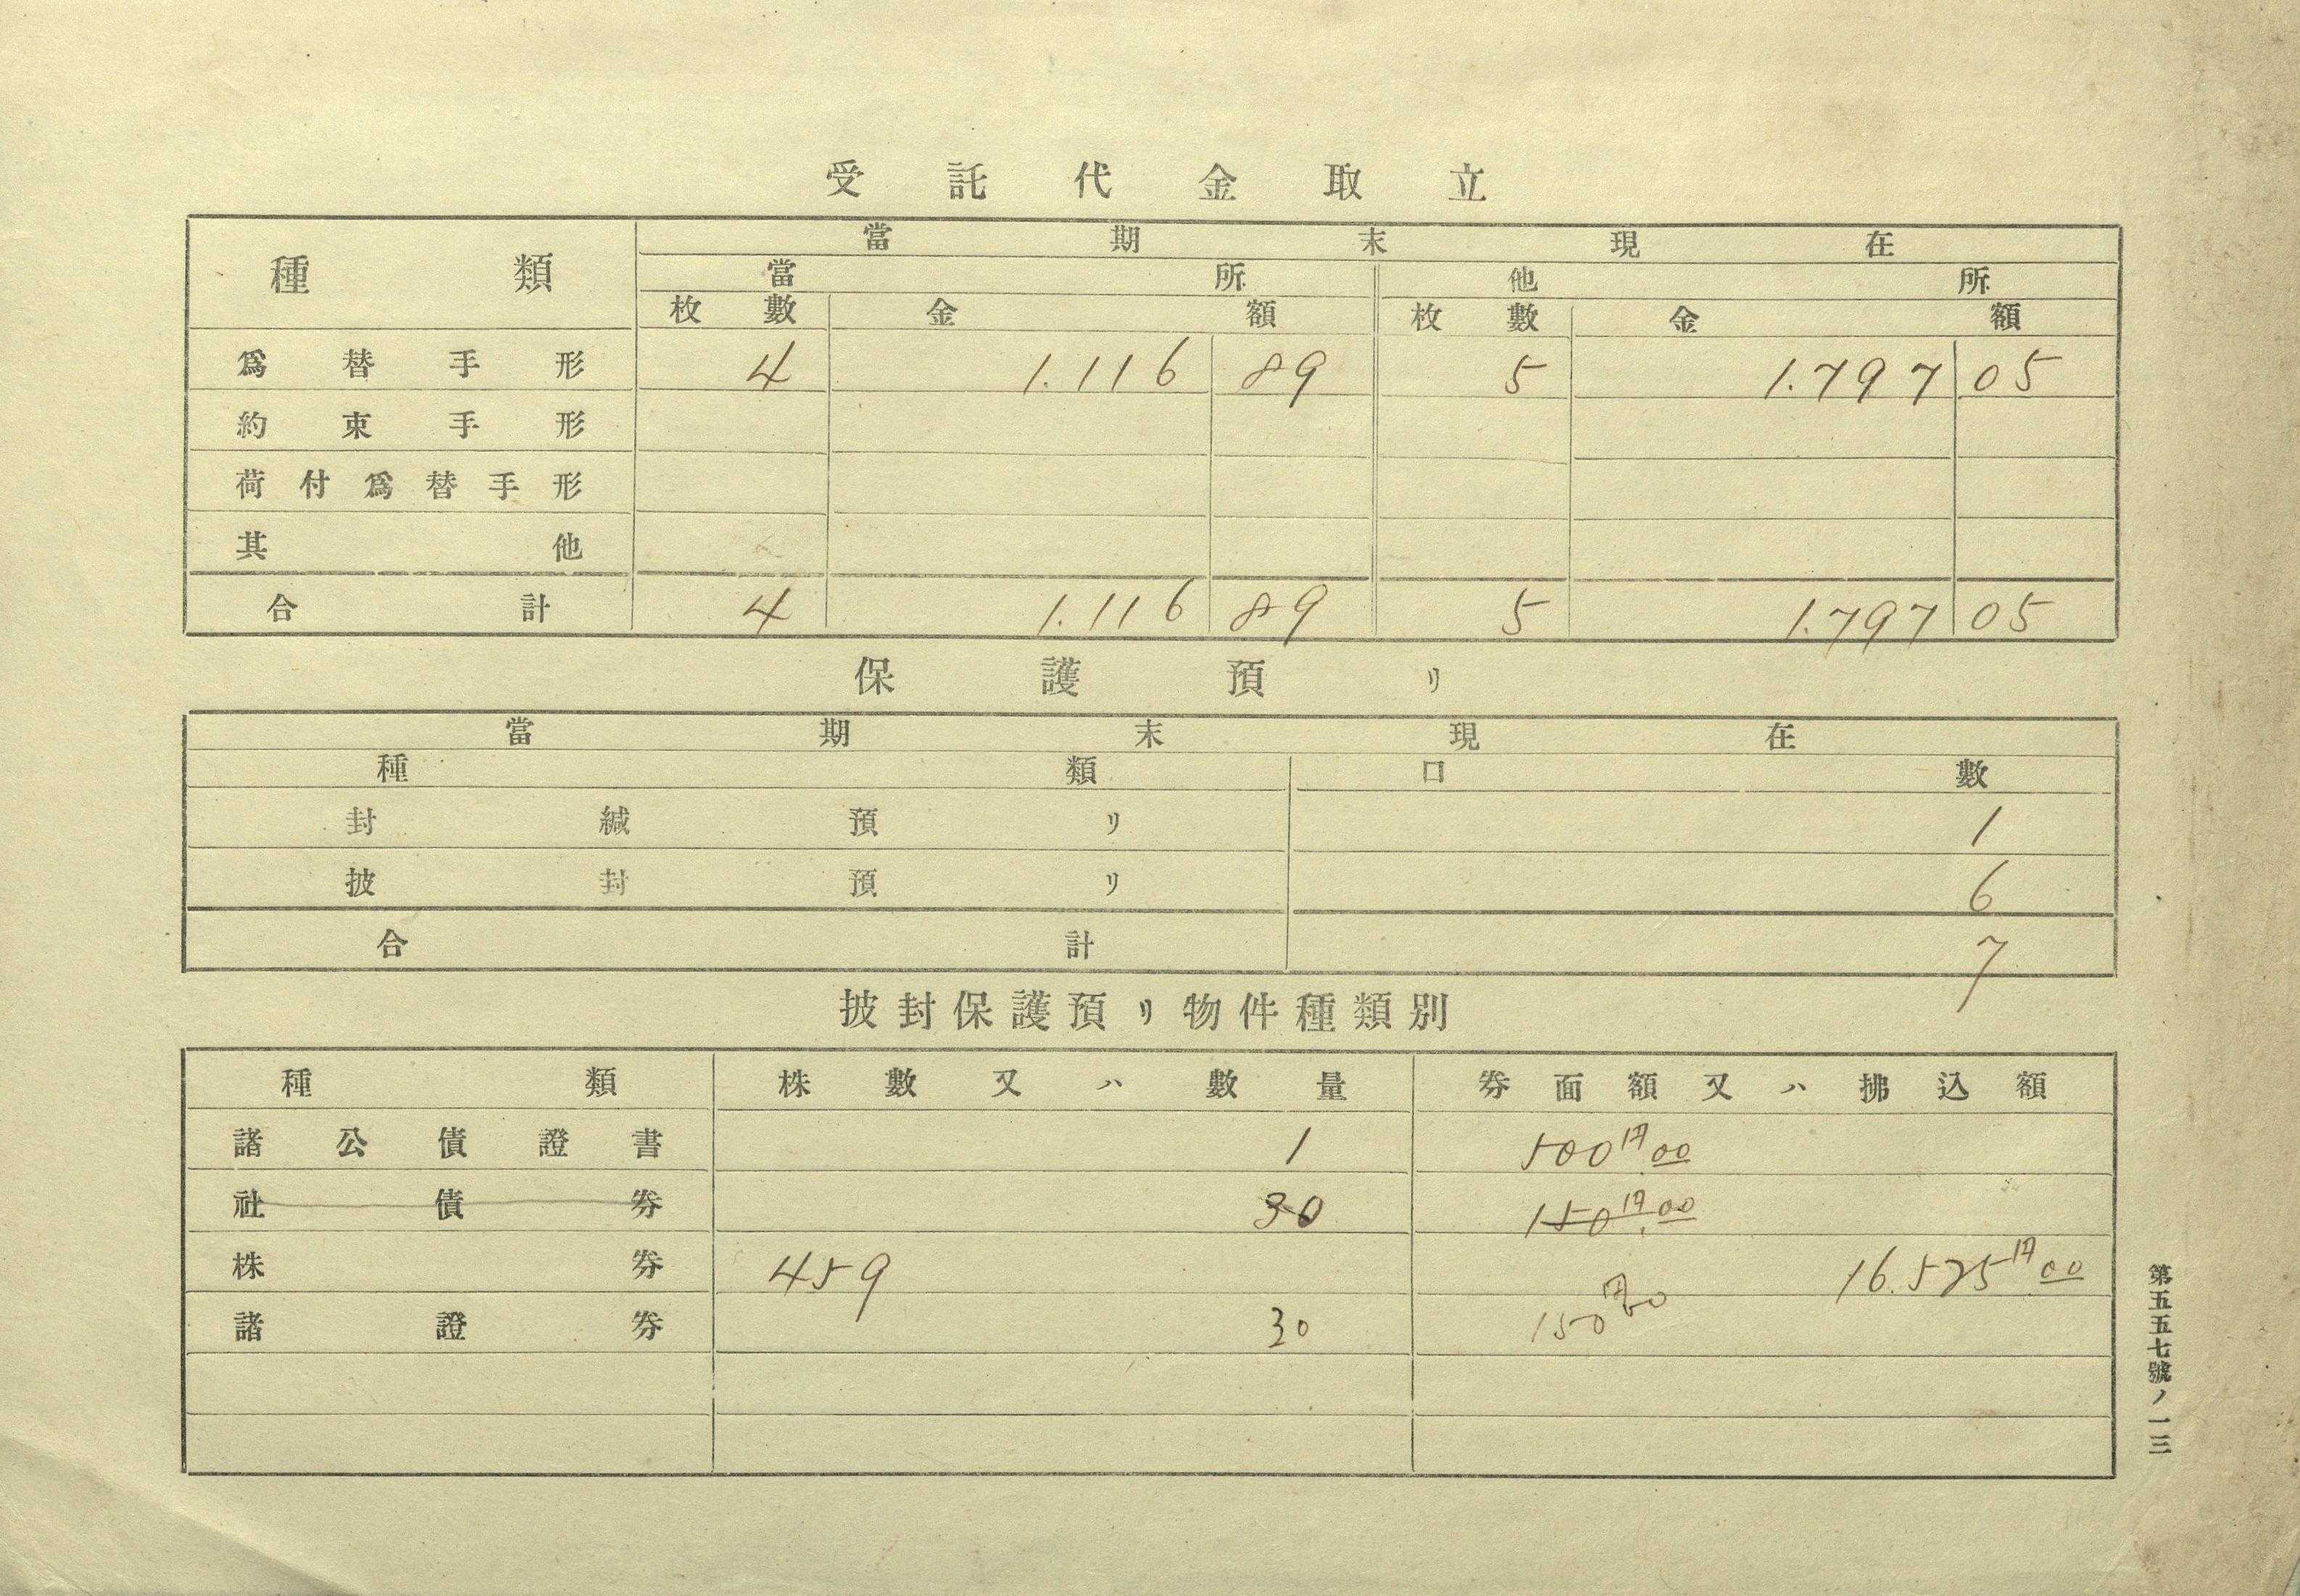 受託代金取立
種類 當期末現在
當所 他所
枚數 金額 枚數 金額
爲替手形 4 1.116 89 5 1.797 05
約束手形
荷付爲替手形
其他
合計 4 1.116 89 5 1.797 05
保護預リ
當期末現在
種類 口數
封緘預リ 1
披封預リ 6
合計 7
披封保護預リ物件種類別
種類 株數又ハ數量 券面額又ハ拂込額
諸公債證書 1 500円00
社債券 30 150円00
株券 459 16.525円00
諸證券 30 150円00
第五五七號ノ一三